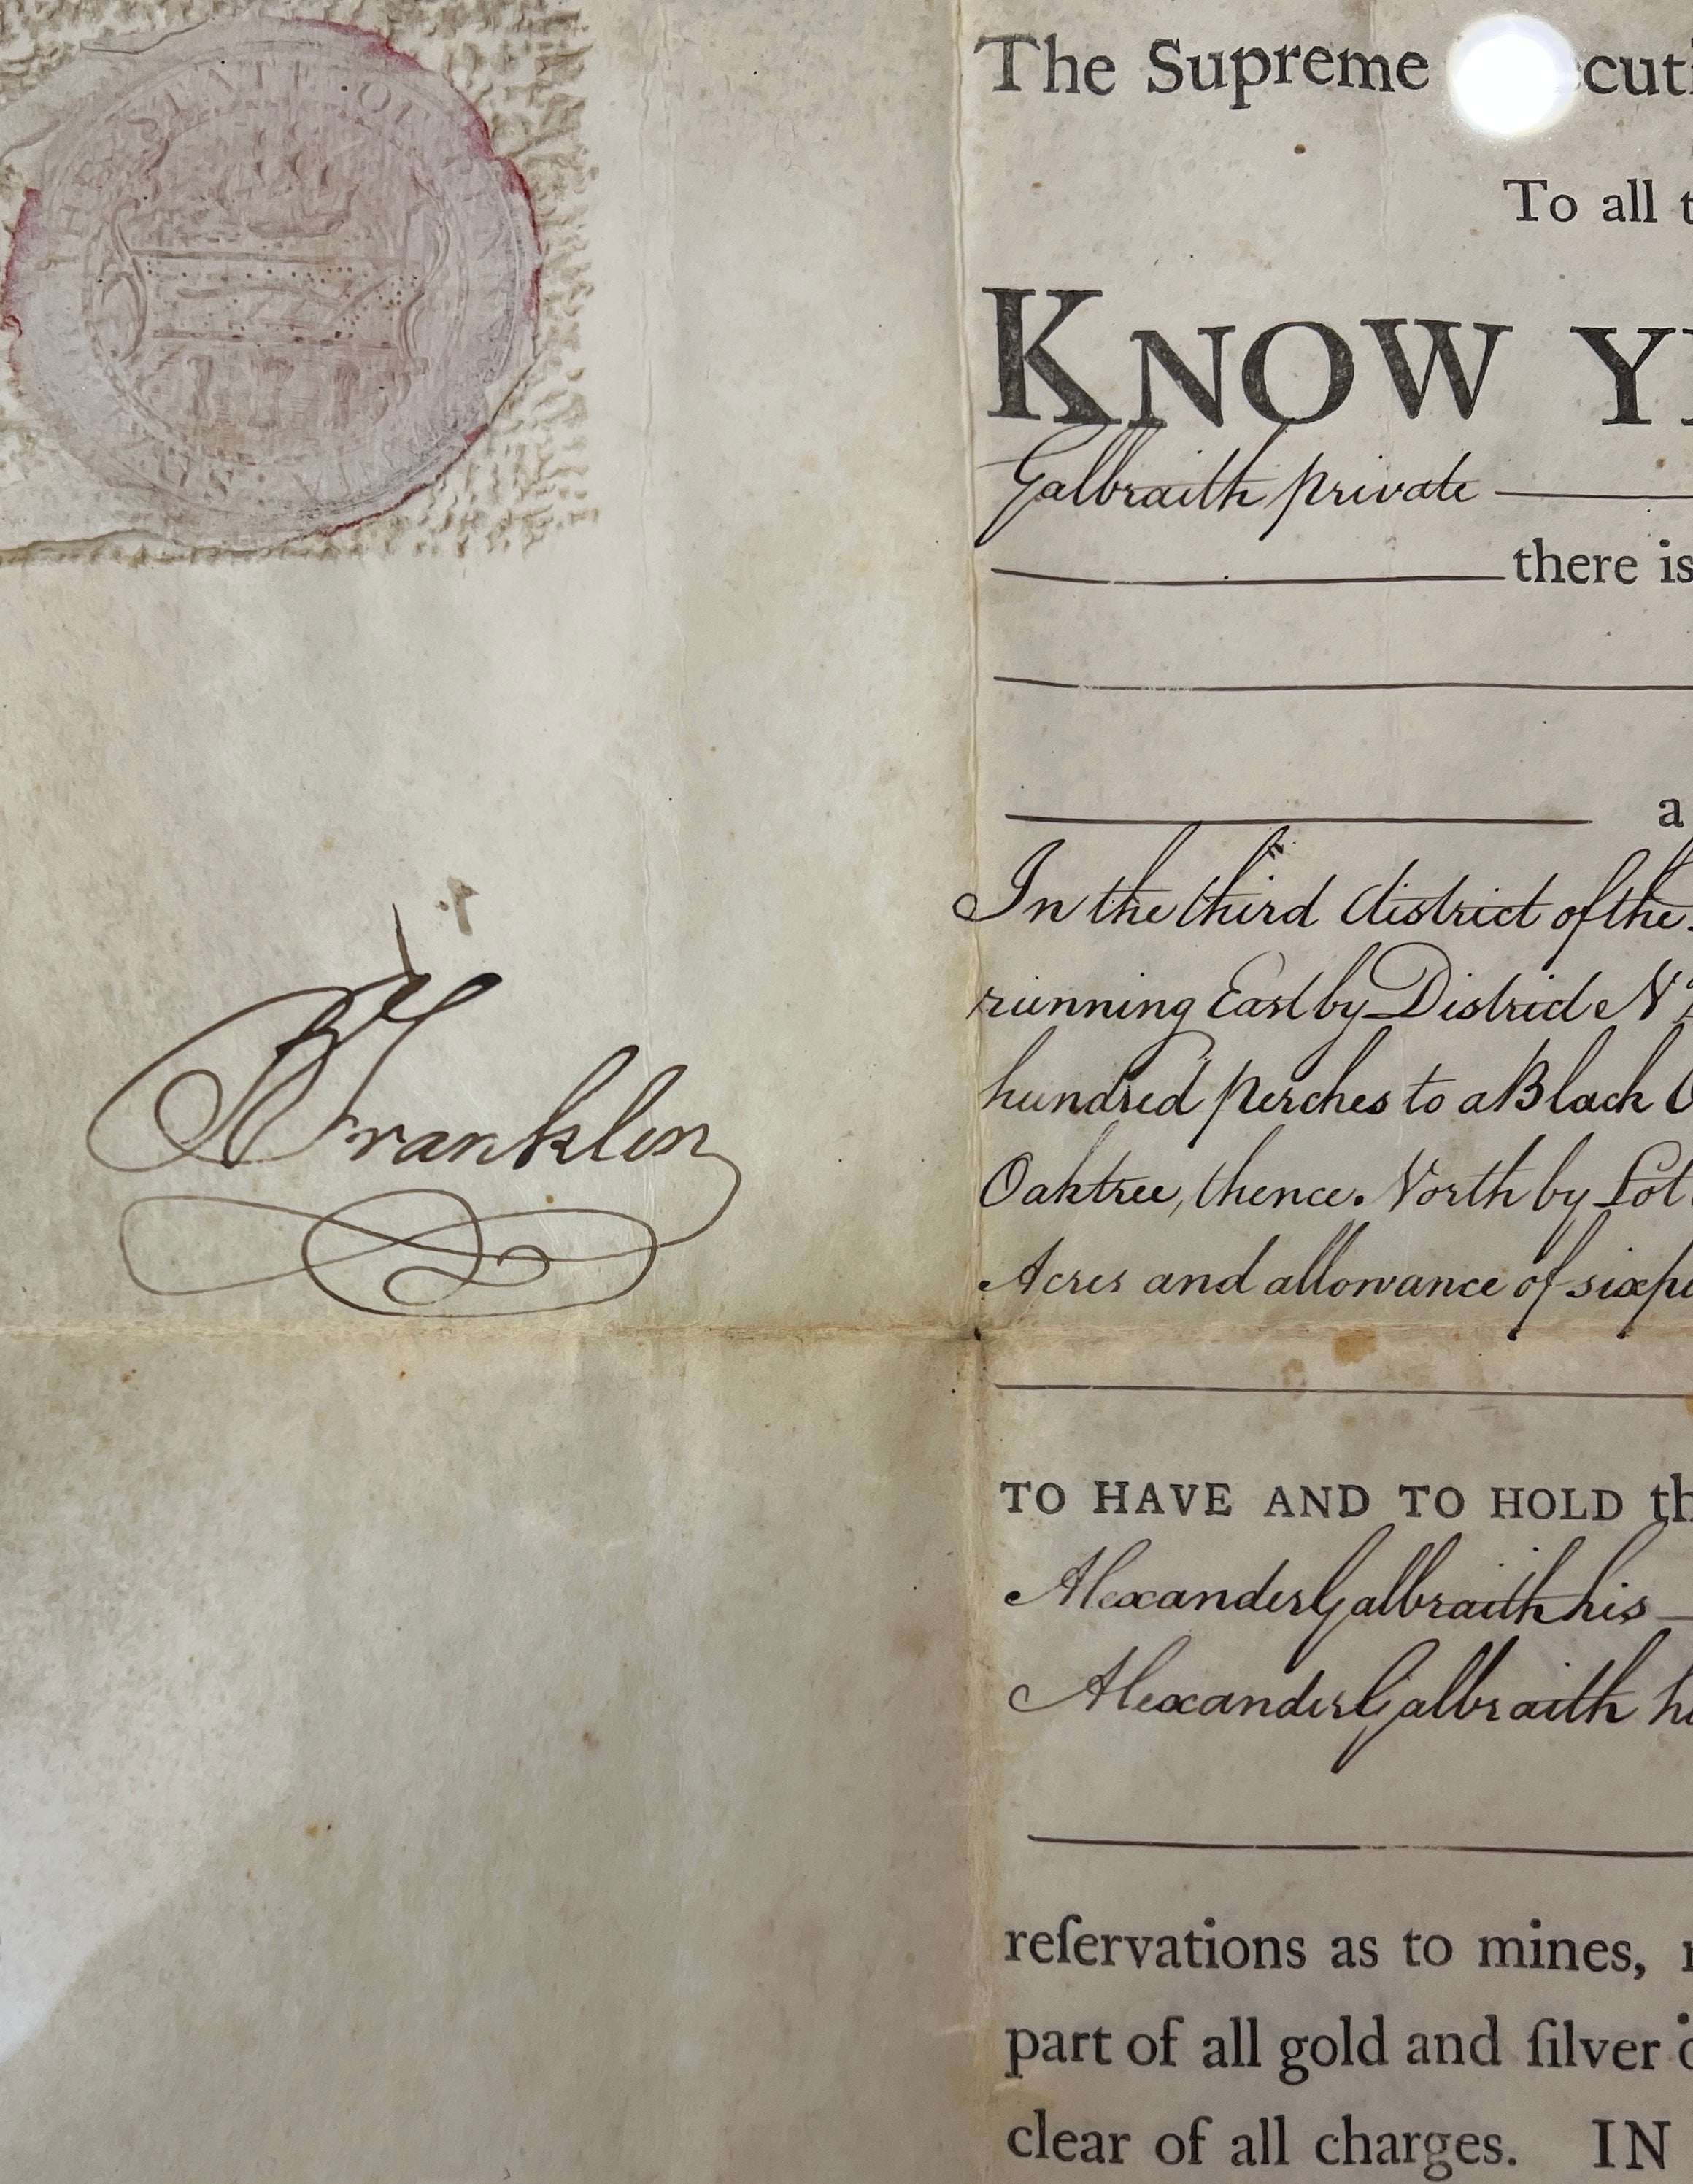 The Supreme cut
To all t
KNOW YE
Galbraith private
there is
a
In the third district of the
running East by District N
hundred perches to a Black O
Oaktree, thence. North by Lot
Acres and allowance of sixpe
B Franklin
TO HAVE AND TO HOLD th
Alexander Galbraith his
Alexander Galbraith h
reſervations as to mines,
part of all gold and ſilver o
clear of all charges. IN